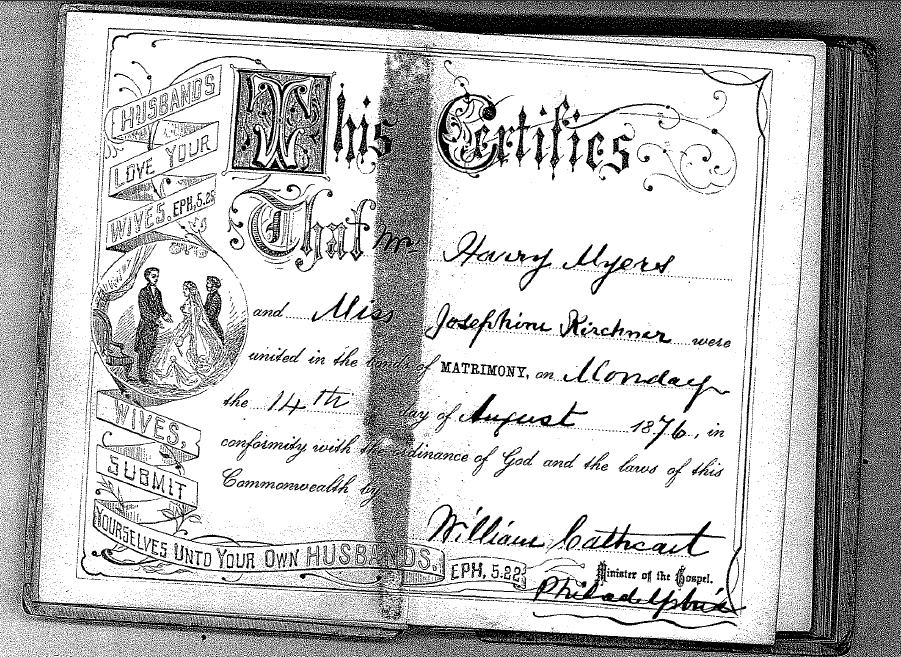 HUSBANDS
LOVE YOUR
WIVES, EPH, 5.25
This Certifies
That Mr. Harry Myers
and Miss Josephine Kirchner were
united in the bonds of MATRIMONY, on Monday
the 14th day of August 1876, in
conformity with the ordinance of God and the laws of this
Commonwealth by
William Cathcart
Minister of the Gospel.
Philadelphia
WIVES,
SUBMIT
YOURSELVES UNTO YOUR OWN HUSBANDS. EPH, 5.22